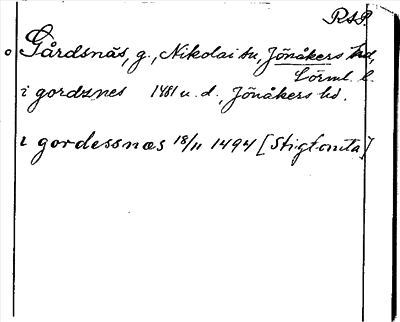 RAP
Gårdsnäs, g., Nikolai sn, Jönåkers hd,
Sörml. l.
i gordznes 1481 u. d., Jönåkers hd.
i gordessnæs 18/11 1494 [Stigtomta]